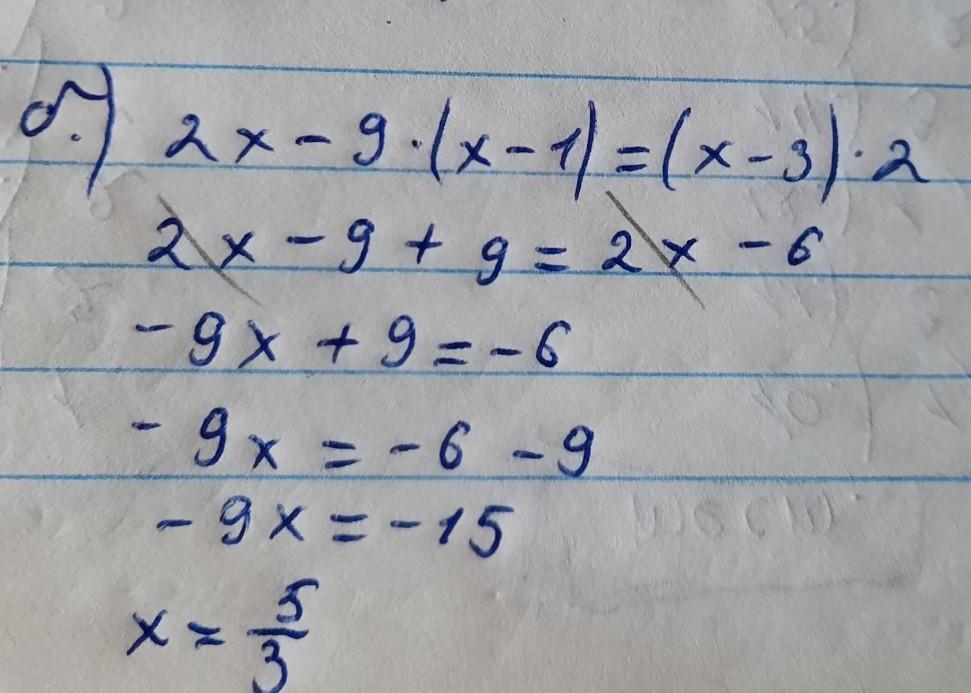 б.) 2x - 9·(x-1) = (x-3)·2
2x - 9 + 9 = 2x - 6
-9x + 9 = -6
-9x = -6 - 9
-9x = -15
x = 5/3